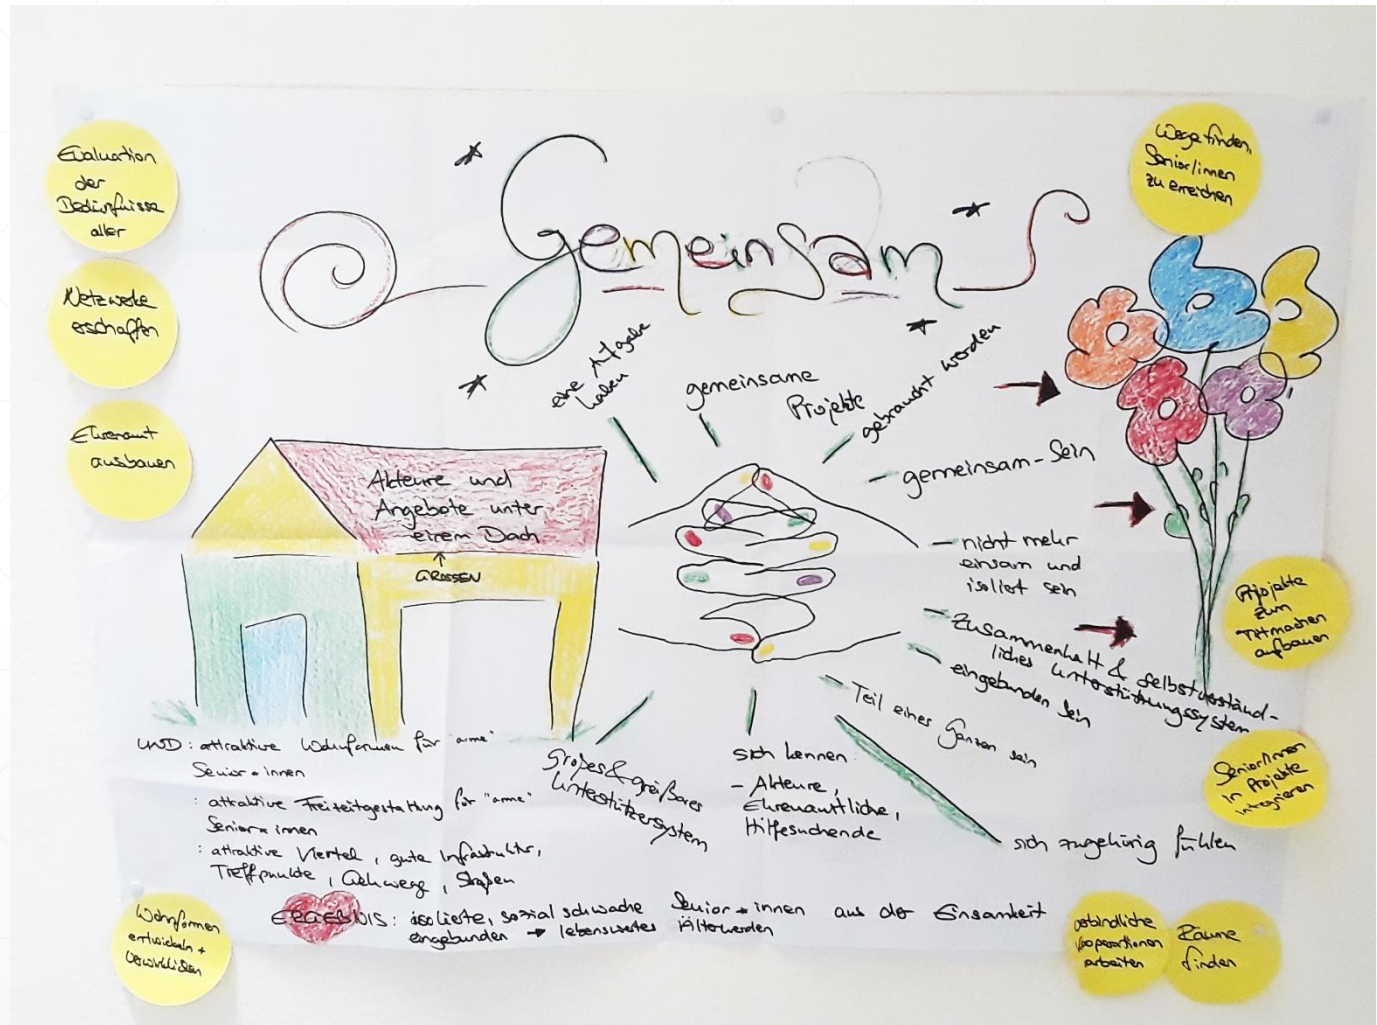 Evaluation
der
Bedürfnisse
aller
Netzwerke
erschaffen
Ehrenamt
ausbauen
Gemeinsam
Wege finden,
Senior/innen
zu erreichen
eine Aufgabe
haben
gemeinsame
Projekte
gebraucht werden
gemeinsam-Sein
nicht mehr
einsam und
isoliert sein
Zusammenhalt & selbstverständ-
liches Unterstützungssystem
eingebunden sein
Teil eines Ganzen sein
sich zugehörig fühlen
sich kennen:
- Akteure,
Ehrenamtliche,
Hilfesuchende
Großes & größeres
Unterstützersystem
Akteure und
Angebote unter
einem Dach
↑
GROSSEN
UND: attraktive Wohnformen für "arme"
Senior*innen
: attraktive Freizeitgestaltung für "arme"
Senior*innen
: attraktive Viertel, gute Infrastruktur,
Treffpunkte, Gehwege, Straßen
ERGEBNIS: isolierte, sozial schwache Senior*innen aus der Einsamkeit
eingebunden → lebenswertes Älterwerden
Projekte
zum
Mitmachen
aufbauen
Senior/innen
in Projekte
integrieren
Wohnformen
entwickeln +
verwirklichen
verbindliche
Kooperationen
arbeiten
Räume
finden